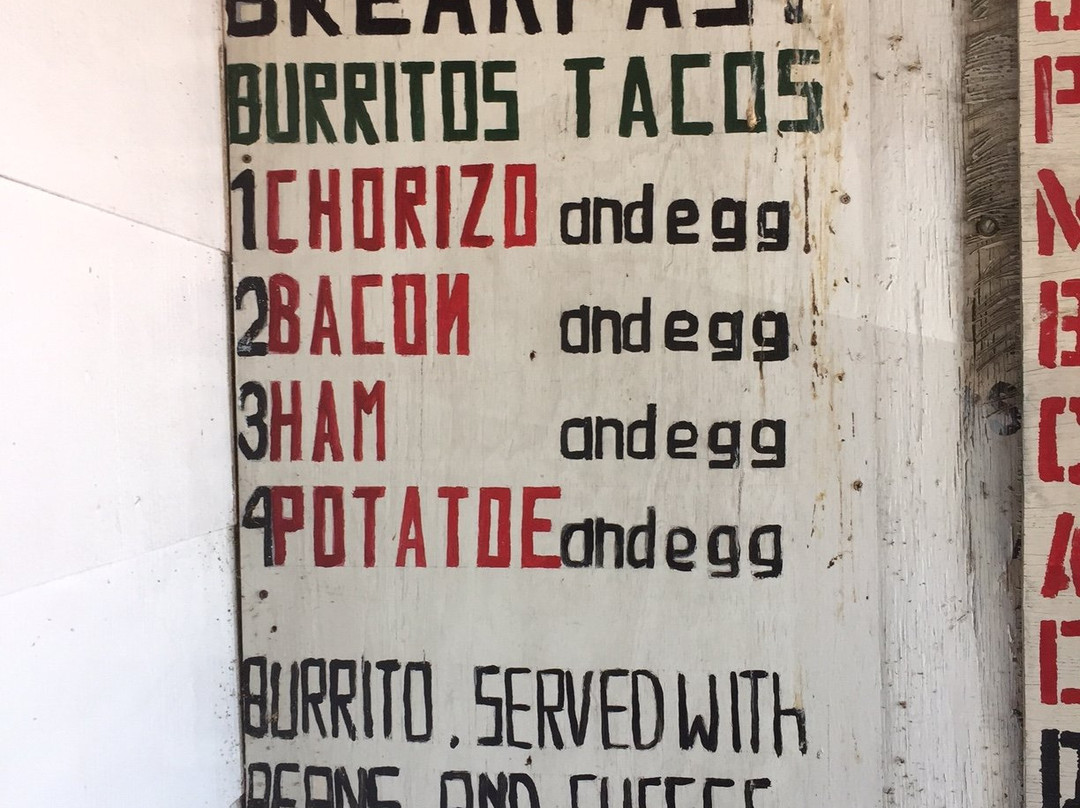 BREAKFAST
BURRITOS TACOS
1 CHORIZO and egg
2 BACON and egg
3 HAM and egg
4 POTATOE and egg
BURRITO. SERVED WITH
BEANS AND CHEESE